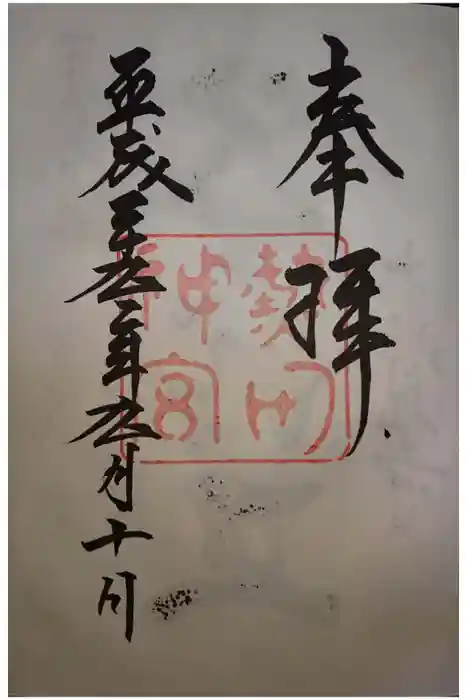 奉拝
熱田
神宮
平成二十九年九月十日